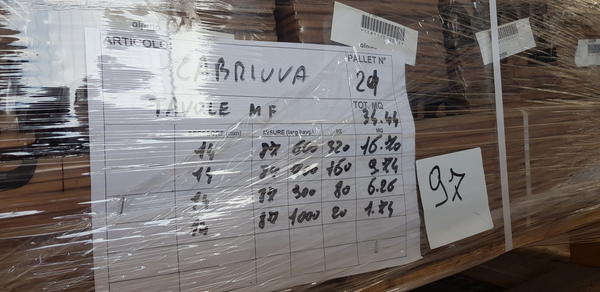 ARTICOLO
CABRIUVA
PALLET N°
TAVOLE MF
TOT. MQ
34.44
SPESSORE (mm) MQ
14 87 600 320 16.70
14 160 9.74
14 87 900 80 6.26
14 87 1000 20 1.74
97